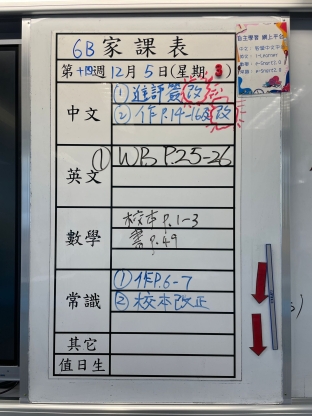 6B家課表
第十四週12月5日(星期3)
中文
①進評簽改
②作P.14-16及改
英文
①WB P.25-26
數學
校本P.1-3
書P.49
常識
①作P.6-7
②校本改正
其它
值日生
自主學習 網上平台